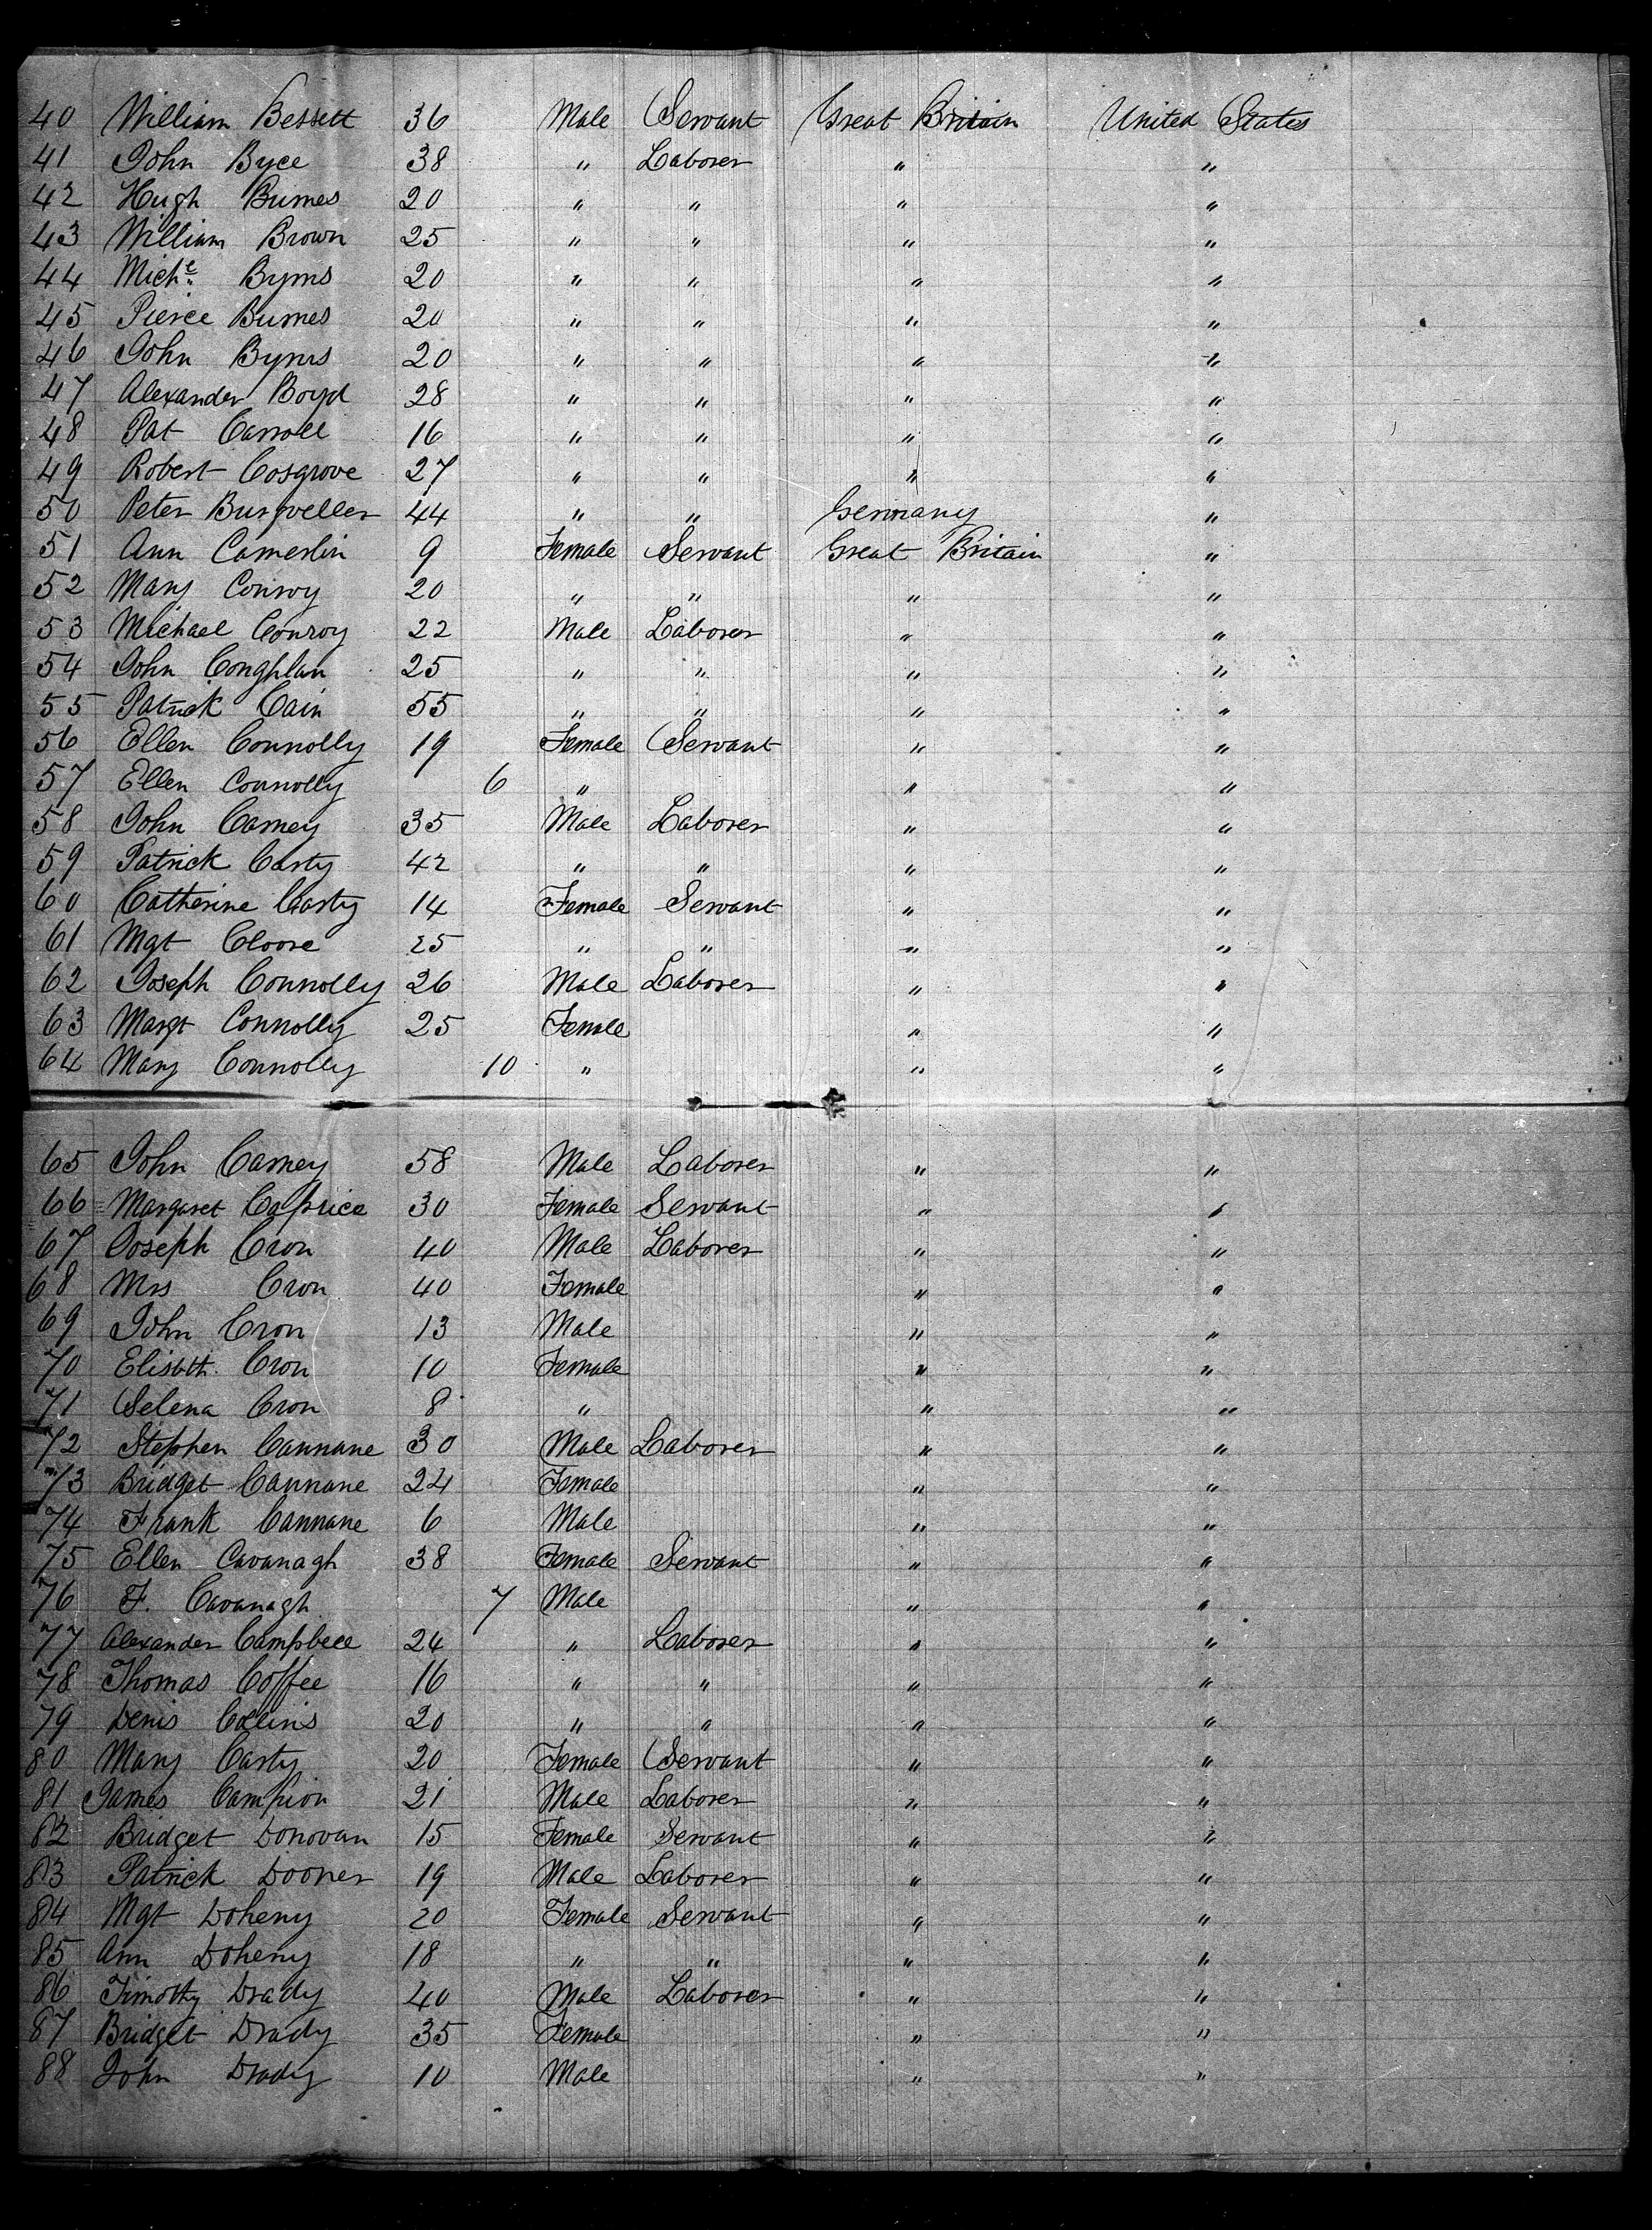 40 William Bessett 36 Male Servant Great Britain United States
41 John Byce 38 " Laborer " "
42 Hugh Burnes 20 " " " "
43 William Brown 25 " " " "
44 Miche. Byrns 20 " " " "
45 Pierce Burnes 20 " " " "
46 John Byrns 20 " " " "
47 Alexander Boyd 28 " " " "
48 Pat Carroll 16 " " " "
49 Robert Cosgrove 27 " " " "
50 Peter Burgveller 44 " " Germany "
51 Ann Camerlin 9 Female Servant Great Britain "
52 Mary Conroy 20 " " " "
53 Michael Conroy 22 Male Laborer " "
54 John Conghlan 25 " " " "
55 Patrick Cain 55 " " " "
56 Ellen Connolly 19 Female Servant " "
57 Ellen Connolly 6 " " "
58 John Carney 35 Male Laborer " "
59 Patrick Carty 42 " " " "
60 Catherine Carty 14 Female Servant " "
61 Mgt Cloore 25 " " " "
62 Joseph Connolly 26 Male Laborer " "
63 Margt Connolly 25 Female " "
64 Mary Connolly 10 " " "
65 John Carney 58 Male Laborer " "
66 Margaret Caprice 30 Female Servant " "
67 Joseph Cron 40 Male Laborer " "
68 Mrs Cron 40 Female " "
69 John Cron 13 Male " "
70 Elisbth. Cron 10 Female " "
71 Selena Cron 8 " " "
72 Stephen Cannane 30 Male Laborer " "
73 Bridget Cannane 24 Female " "
74 Frank Cannane 6 Male " "
75 Ellen Cavanagh 38 Female Servant " "
76 F. Cavanagh 7 Male " "
77 Alexander Campbell 24 " Laborer " "
78 Thomas Coffee 16 " " " "
79 Denis Collins 20 " " " "
80 Mary Carty 20 Female Servant " "
81 James Campion 21 Male Laborer " "
82 Bridget Donovan 15 Female Servant " "
83 Patrick Dooner 19 Male Laborer " "
84 Mgt Doheny 20 Female Servant " "
85 Ann Doheny 18 " " " "
86 Timothy Drady 40 Male Laborer " "
87 Bridget Drady 35 Female " "
88 John Drady 10 Male " "